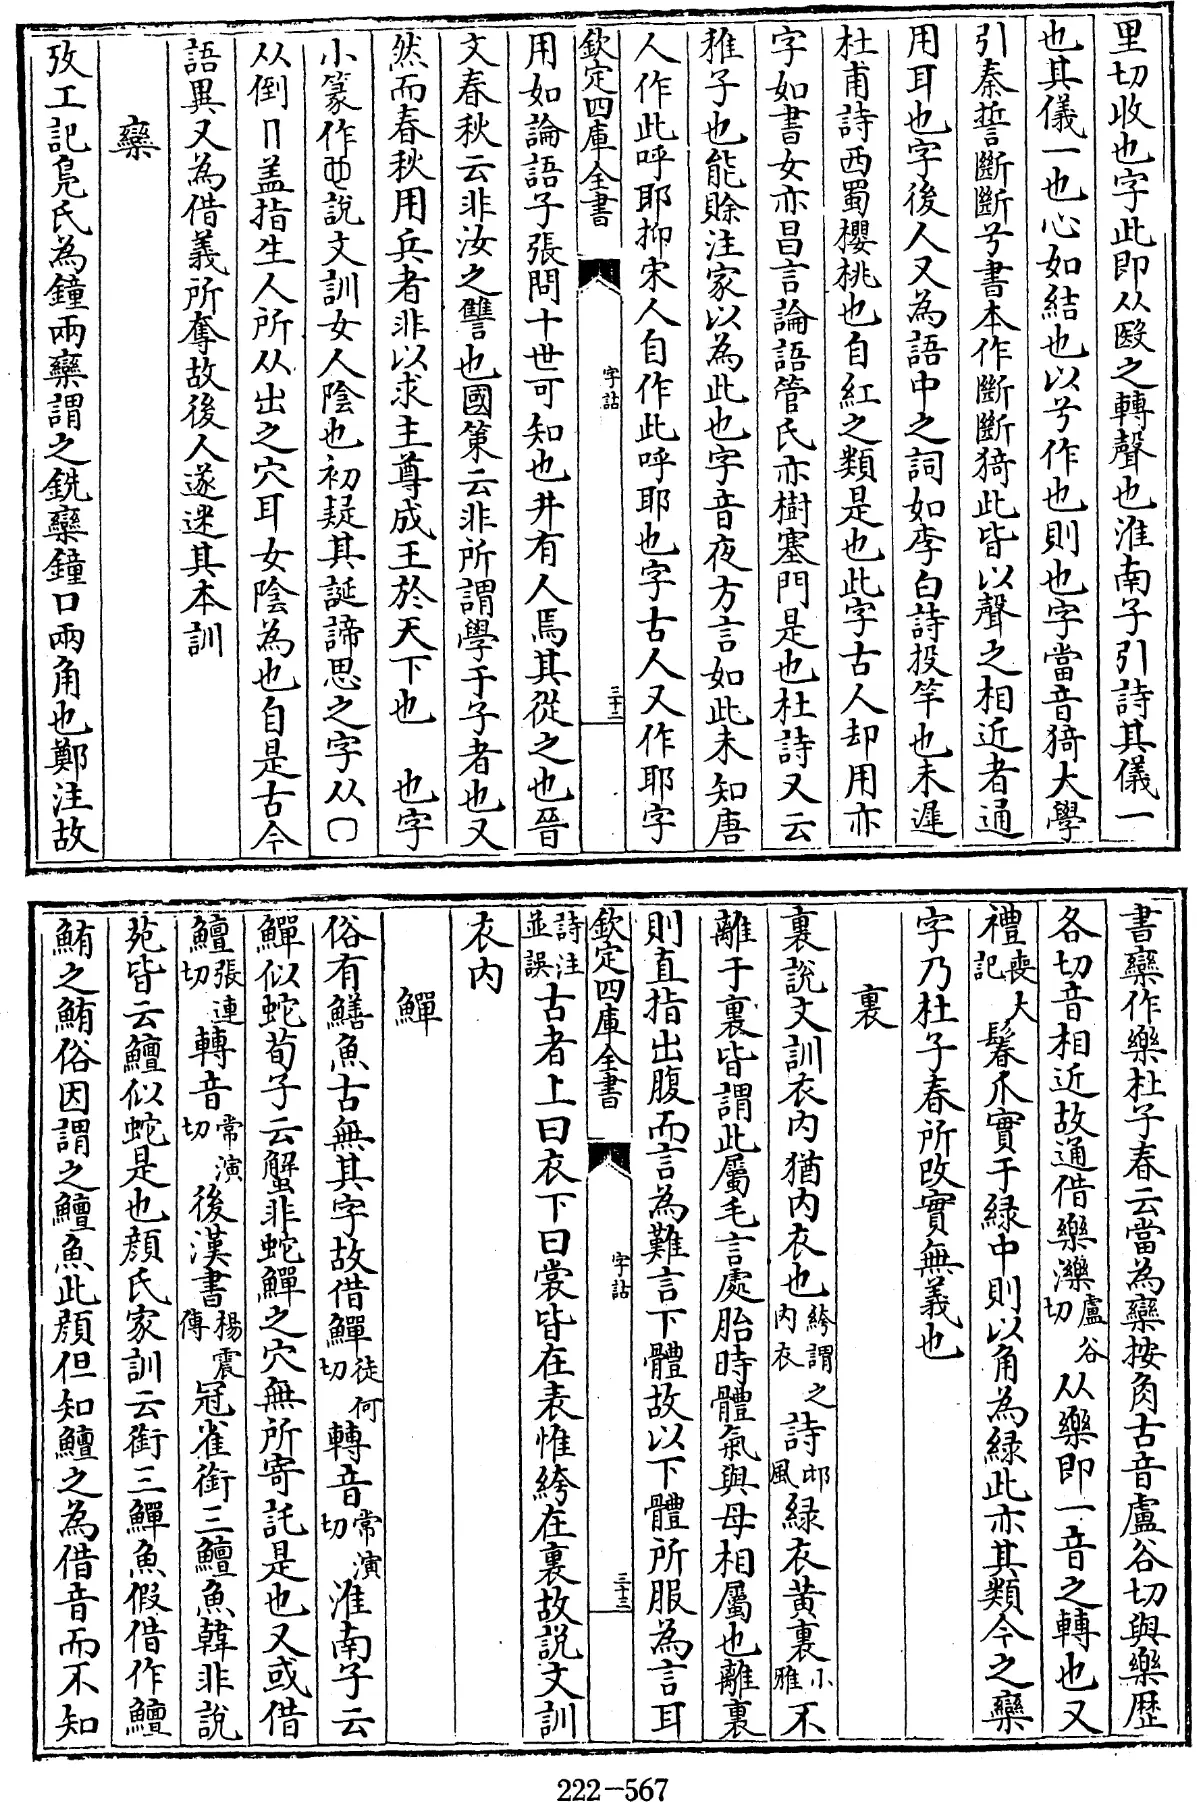 里切收也字此即从殹之轉聲也淮南子引詩其儀一
也其儀一也心如結也以兮作也則也字當音猗大學
引秦誓斷斷兮書本作斷斷猗此皆以聲之相近者通
用耳也字後人又為語中之詞如李白詩投竿也未遲
杜甫詩西蜀櫻桃也自紅之類是也此字古人却用亦
字如書女亦昌言論語管氏亦樹塞門是也杜詩又云
稚子也能賒注家以為此也字音夜方言如此未知唐
人作此呼耶抑宋人自作此呼耶也字古人又作耶字
欽定四庫全書 字詁 三十二
用如論語子張問十世可知也井有人焉其從之也晉
文春秋云非汝之讐也國策云非所謂學于子者也又
然而春秋用兵者非以求主尊成王於天下也 也字
小篆作 說文訓女人陰也初疑其誕諦思之字从
从倒 盖指生人所从出之穴耳女陰為也自是古今
語異又為借義所奪故後人遂迷其本訓
欒
攷工記鳧氏為鐘兩欒謂之銑欒鐘口兩角也鄭注故
書欒作樂杜子春云當為欒按角古音盧谷切與樂歴
各切音相近故通借樂濼盧谷切从樂即一音之轉也又
禮喪大記鬊爪實于緑中則以角為緑此亦其類今之欒
字乃杜子春所改實無義也
裏
裏說文訓衣内猶内衣也綘謂之内衣詩邶風緑衣黄裏小雅不
離于裏皆謂此屬毛言處胎時體氣與母相屬也離裏
則直指出腹而言為難言下體故以下體所服為言耳
欽定四庫全書 字詁 三十三
詩注並誤古者上曰衣下曰裳皆在表惟綘在裏故說文訓
衣内
鱓
俗有鱔魚古無其字故借鱓徒何切轉音常演切淮南子云
鱓似蛇荀子云蟹非蛇鱓之穴無所寄託是也又或借
鱣張連切轉音常演切後漢書楊震傳冠雀銜三鱣魚韓非說
苑皆云鱣似蛇是也顔氏家訓云銜三鱓魚假借作鱣
鮪之鮪俗因謂之鱣魚此顔但知鱣之為借音而不知
222-567